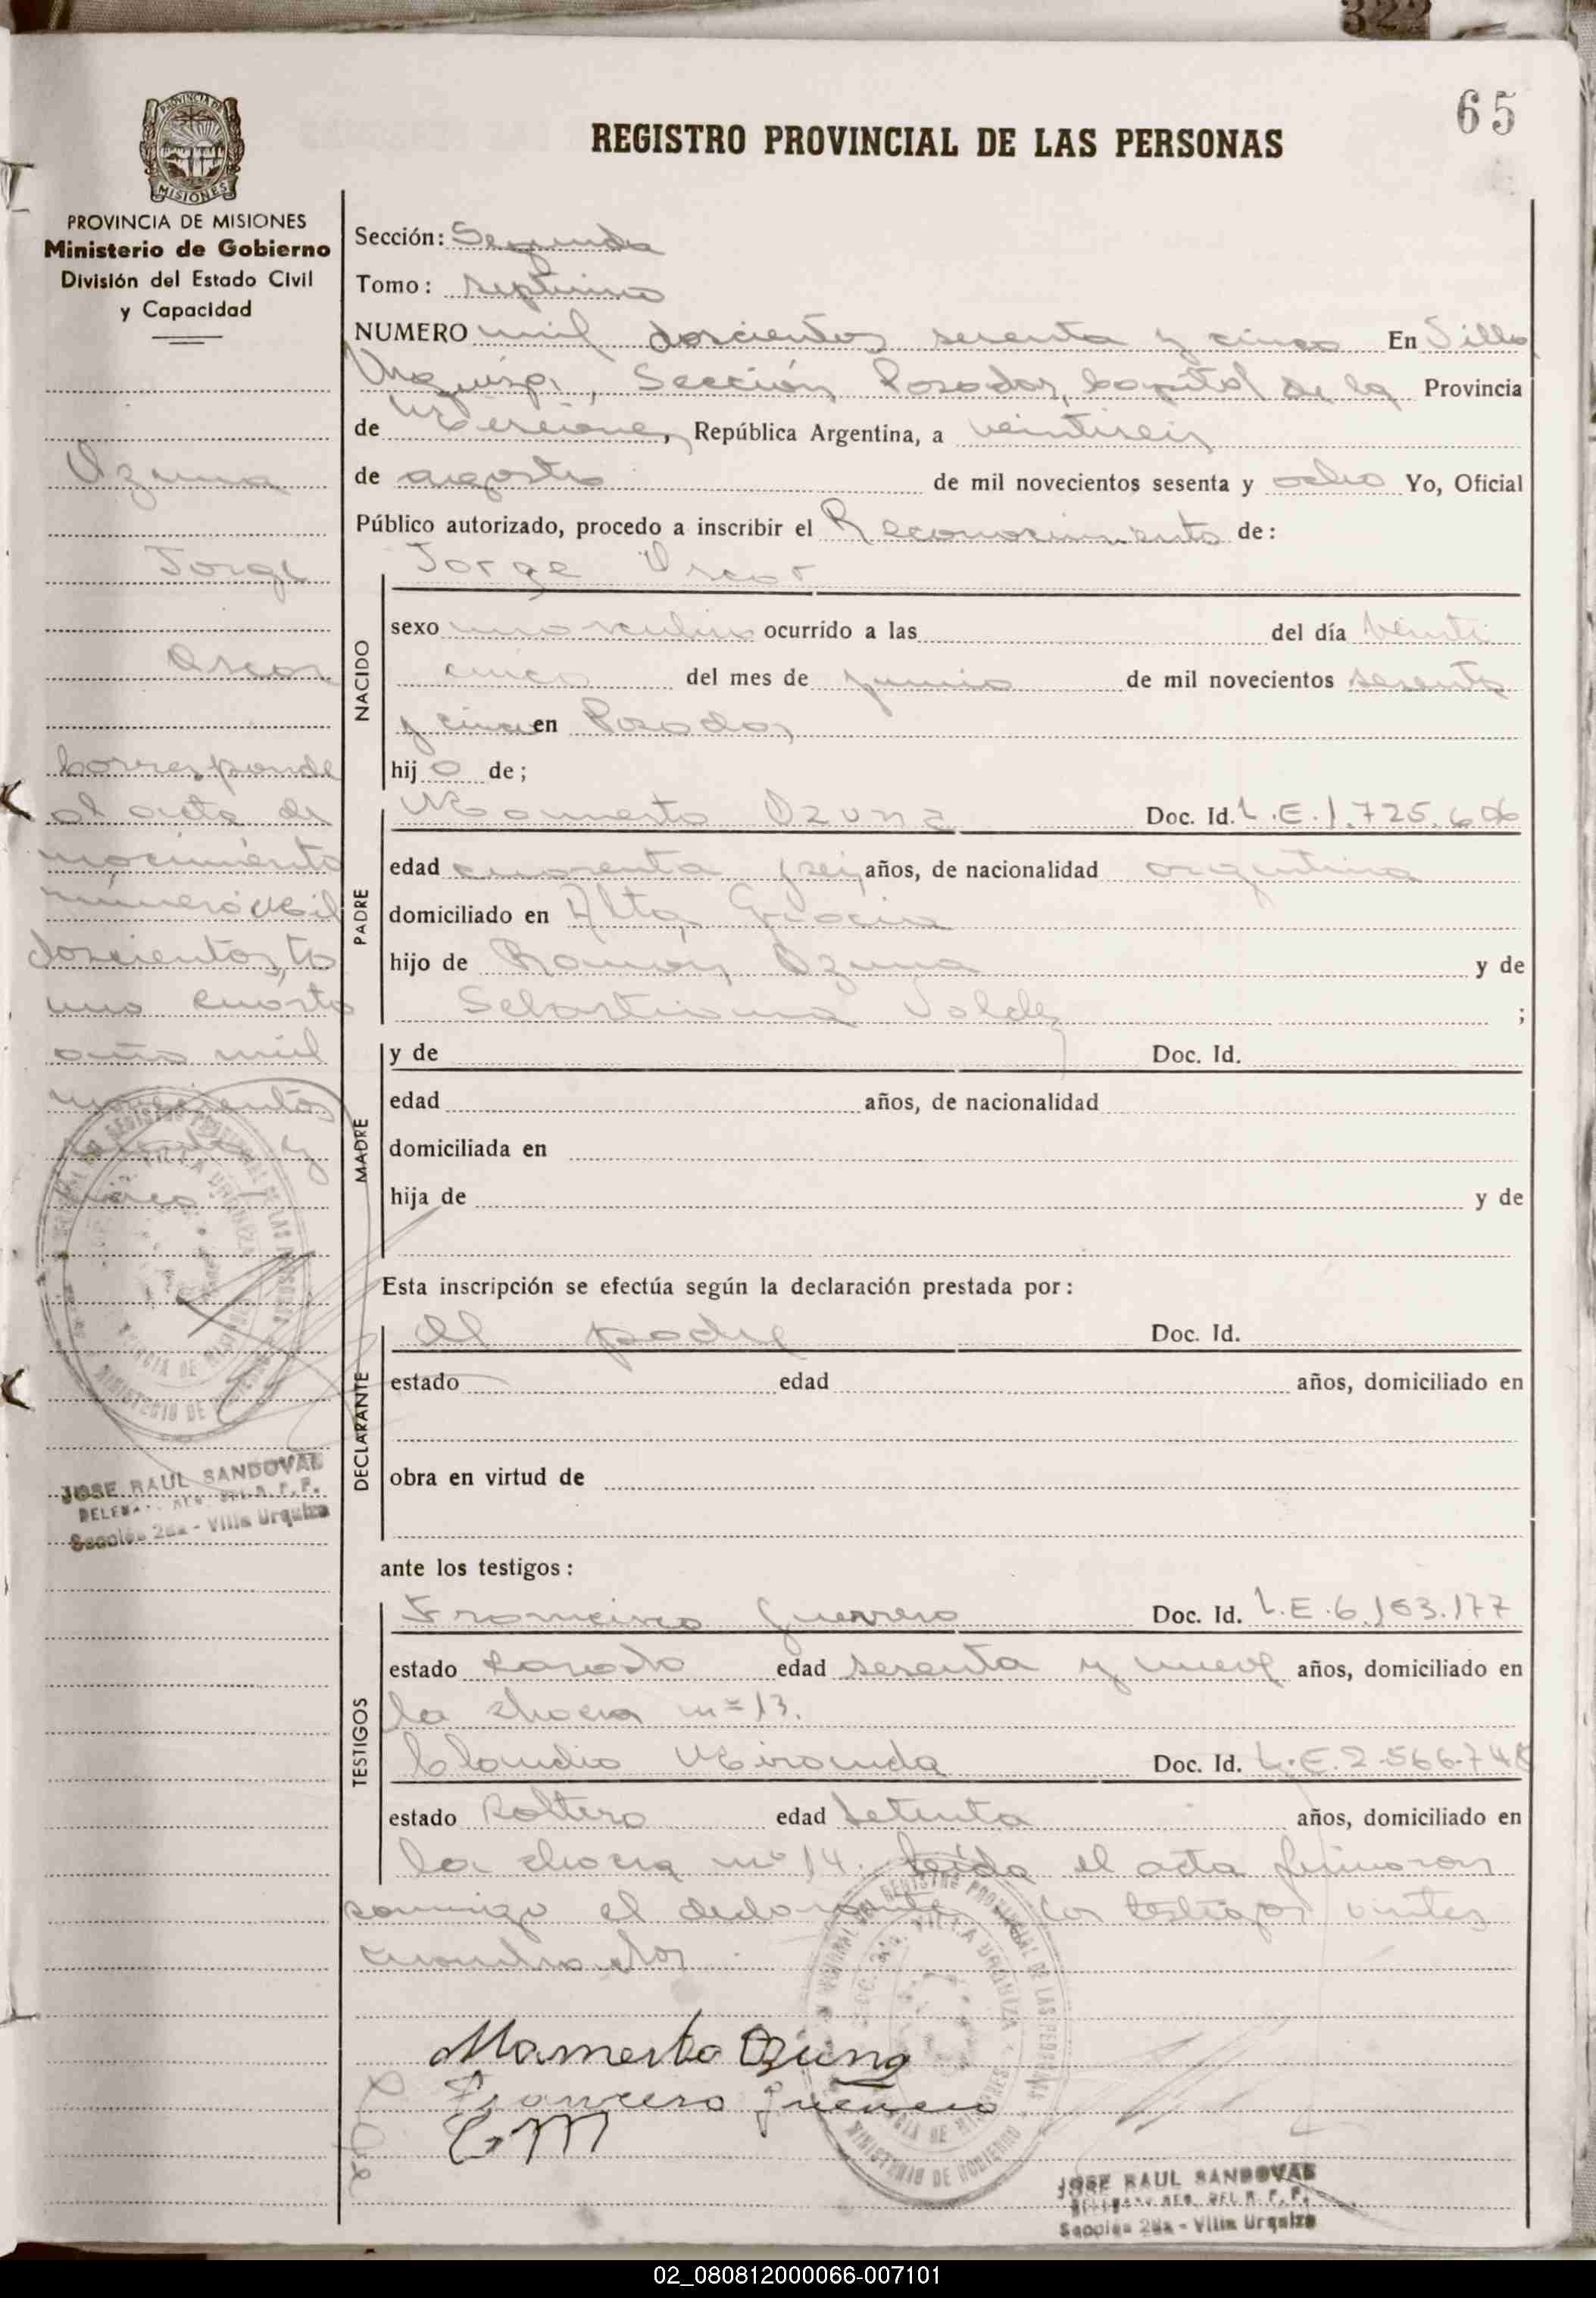 322
65
PROVINCIA DE
MISIONES
REGISTRO PROVINCIAL DE LAS PERSONAS
PROVINCIA DE MISIONES
Ministerio de Gobierno
División del Estado Civil
y Capacidad
Ozuna
Jorge
Oscar
Corresponde
al acta de
nacimiento
número Mil
doscientos, to
mo cuarto
año mil
novecientos
sesenta y
cinco
JOSE RAUL SANDOVAL
Sección 2da - Villa Urquiza
Sección: Segunda
Tomo: septimo
NUMERO mil doscientos sesenta y cinco En Villa
Urquiza, Sección Posadas, Capital de la Provincia
de Misiones, República Argentina, a veintiseis
de agosto de mil novecientos sesenta y ocho Yo, Oficial
Público autorizado, procedo a inscribir el Reconocimiento de:
Jorge Oscar
NACIDO
sexo masculino ocurrido a las del día veinti
cinco del mes de junio de mil novecientos sesenta
y cinco en Posadas
hij o de;
PADRE
Mamerto Ozuna Doc. Id. L.E.1.725.606
edad cuarenta y seis años, de nacionalidad argentina
domiciliado en Alta Gracia
hijo de Ramón Ozuna y de
Sebastiana Valdez ;
MADRE
y de Doc. Id.
edad años, de nacionalidad
domiciliada en
hija de y de
Esta inscripción se efectúa según la declaración prestada por:
DECLARANTE
el padre Doc. Id.
estado edad años, domiciliado en
obra en virtud de
ante los testigos:
TESTIGOS
Francisco Guerrero Doc. Id. L.E.6.163.177
estado casado edad sesenta y nueve años, domiciliado en
la chacra nº 13.
Claudio Miranda Doc. Id. L.E.2.566.748
estado soltero edad setenta años, domiciliado en
la chacra nº 14. leída el acta firmaron
conmigo el declarante los testigos
Mamerto Ozuna
Francisco Guerrero
C. M
JOSE RAUL SANDOVAL
Sección 2da - Villa Urquiza
02_080812000066-007101